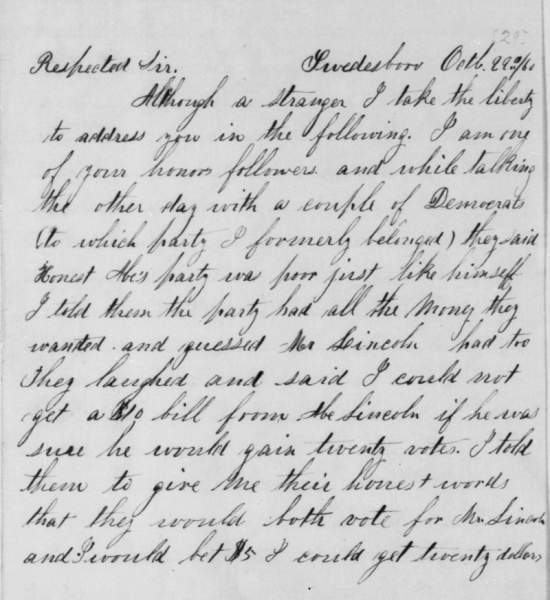 [20]
Respected Sir. Swedesboro Octb. 22nd/60
Although a stranger I take the liberty
to address you in the following. I am one
of your honors followers and while talking
the other day with a couple of Democrats
(to which party I formerly belonged) they said
Honest Abe's party was poor just like himself
I told them the party had all the Money they
wanted and guessed Mr Lincoln had too
They laughed and said I could not
get a $10 bill from Abe Lincoln if he was
sure he would gain twenty votes. I told
them to give me their honest words
that they would both vote for Mr Lincoln
and I would bet $5 I could get twenty dollars